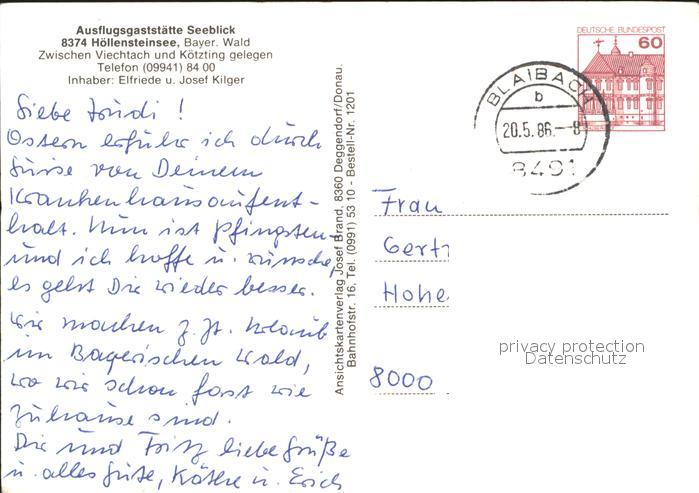 Ausflugsgaststätte Seeblick
8374 Höllensteinsee, Bayer. Wald
Zwischen Viechtach und Kötzting gelegen
Telefon (09941) 84 00
Inhaber: Elfriede u. Josef Kilger
Liebe Trudi !
Ostern erfuhr ich durch
von Deinem
Krankenhausaufent-
halt. Nun ist Pfingsten
und ich hoffe u. wünsche,
es geht Dir wieder besser.
Wir machen z. Zt. Urlaub
im Bayerischen Wald,
wo wir schon fast wie
zuhause sind.
Dir und Fritz liebe Grüße
u. alles Gute, Käthe u. Erich
Ansichtskartenverlag Josef Brand, 8360 Deggendorf/Donau.
Bahnhofstr. 16, Tel. (0991) 53 10 - Bestell-Nr. 1201
DEUTSCHE BUNDESPOST
60
BLAIBACH
b
20.5.86.-8
8491
Frau
Gert
Hohe
8000
privacy protection
Datenschutz